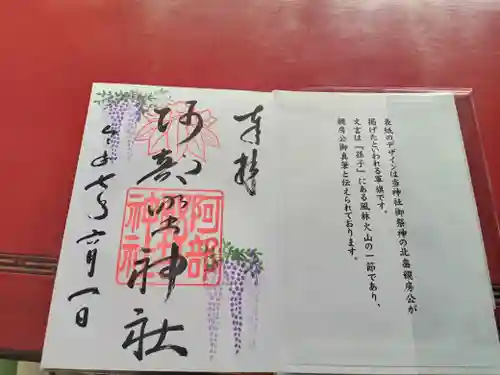 表紙のデザインは当神社御祭神の北畠顕房公が
掲げたといわれる軍旗です。
文言は『孫子』にある風林火山の一節であり、
顕房公御真筆と伝えられております。
奉拝
阿部野神社
阿部野神社
令和七年六月一日